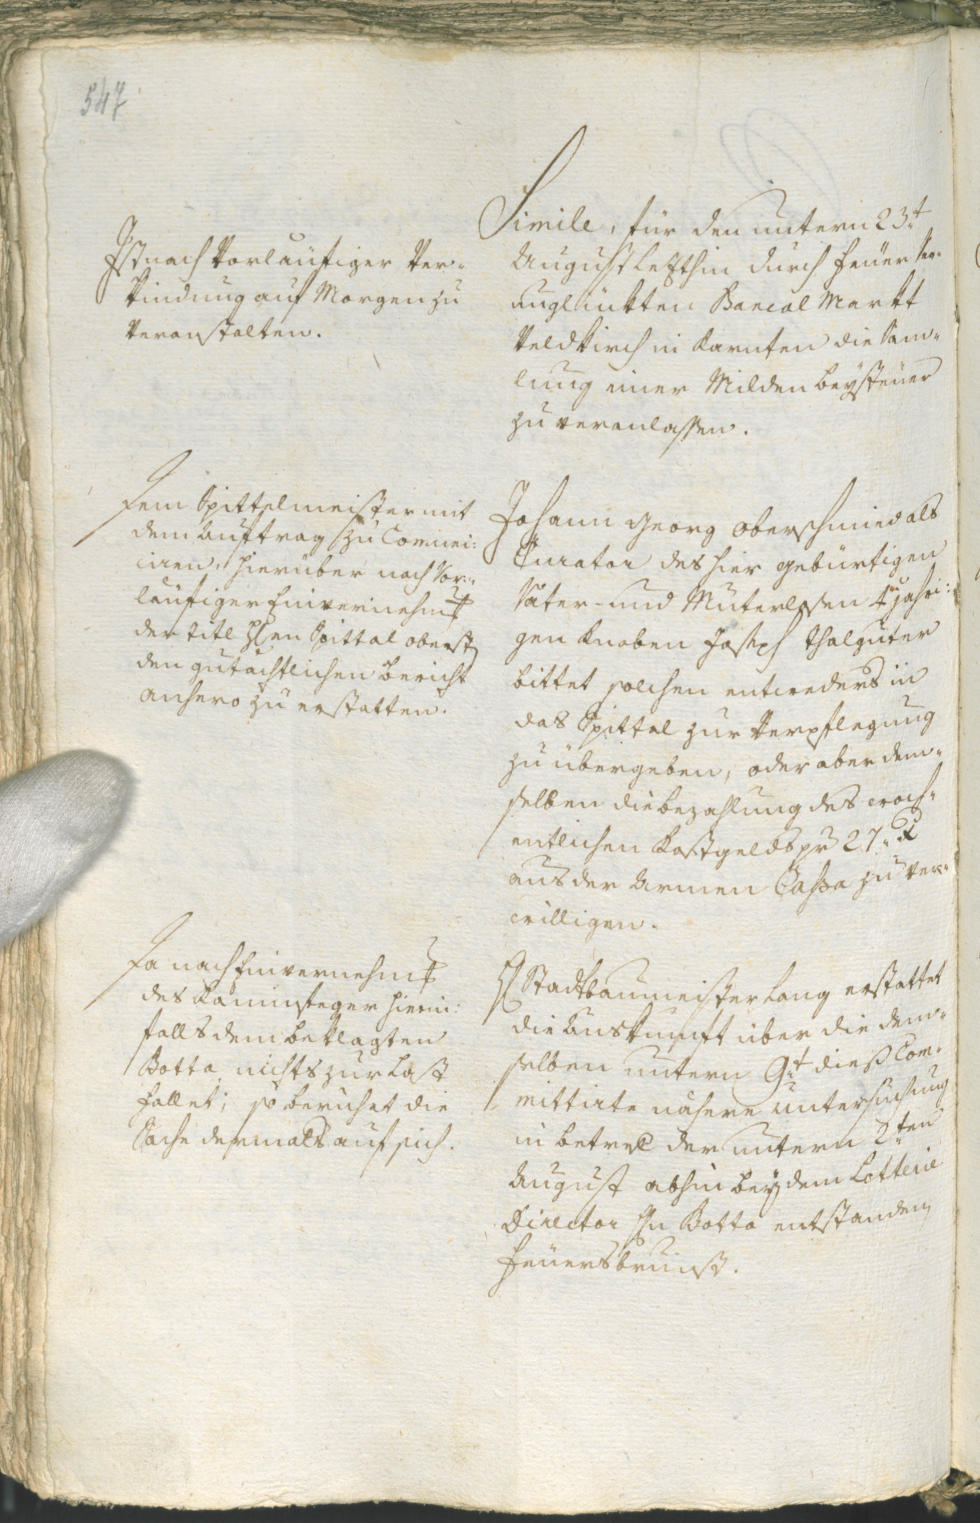 547
Ist nach Vorläufiger Ver¬
kindung auf Morgen zu
veranstalten.
Simile, für den untern 23t
August letzthin durch Feuer Ver¬
unglükten Bancal Markt
Veldkirch in Karnten die Sam¬
lung einer Milden beÿsteuer
zu veranlassen.
Dem Spittelmeister mit
dem Auftrag zu Commei¬
ciren, hierüber nach Vor¬
läufiger Einvernehmung
der titl Hen Spittal obersten
den gutachtlichen bericht
anhero zu erstatten.
Johann Georg Oberschmied als
Curator des hier gebürtigen
Vater- und Muterlosen 4 jahri¬
gen Knaben Joseph Thalguter
bittet solchen entweders in
das Spittal zur Verpflegung
zu übergeben, oder aber dem¬
selben die bezahlung des woch¬
entlichen Kostgelds pr 27 x
aus der Armen Cassa zu ver¬
willigen.
Da nach Einvernehmung
des Kaminfeger hierin¬
falls dem beklagten
Botta nichts zur Last
fallet; so beruhet die
Sache dermals auf sich.
H Stadtbaumeister Lang erstattet
die Auskunft über die dem¬
selben untern 9t dieß Com¬
mittirte nähere untersuchung
in betref der untern 2ten
August abhin beÿ dem Lotterie
Director Hn Botta entstanden
Feuersbrunst.